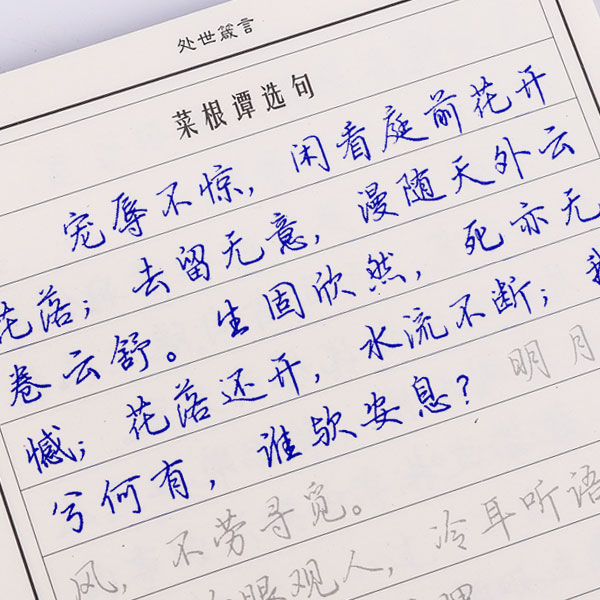 处世箴言
菜根谭选句
宠辱不惊，闲看庭前花开
花落；去留无意，漫随天外云
卷云舒。生固欣然，死亦无
憾；花落还开，水流不断；我
兮何有，谁欤安息？明月
风，不劳寻觅。
眼观人，冷耳听语
理